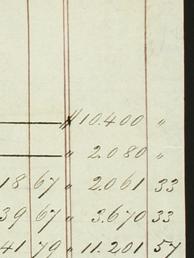 $10.400 "
" 2.080 "
18 67 " 2.061 33
39 67 " 3.670 33
41 79 " 11.201 57